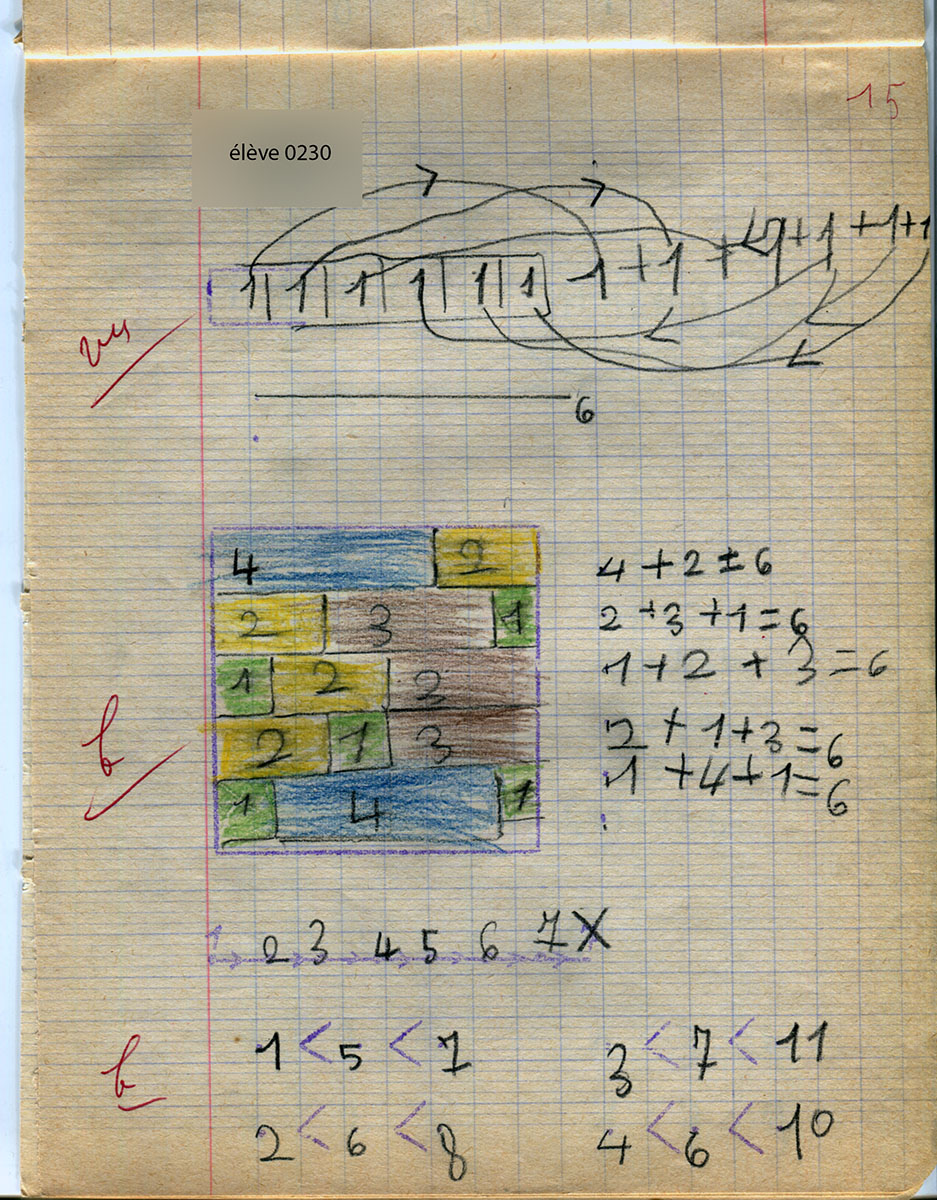 15
élève 0230
1 1 1 1 1 1 1 + 1 + 1 + 1 + 1 + 1
vu
6
4 2
2 3 1
1 2 3
2 1 3
1 4 1
4 + 2 = 6
2 + 3 + 1 = 6
1 + 2 + 3 = 6
2 + 1 + 3 = 6
1 + 4 + 1 = 6
b
1 2 3 4 5 6 7 X
b
1 < 5 < 7 3 < 7 < 11
2 < 6 < 8 4 < 6 < 10